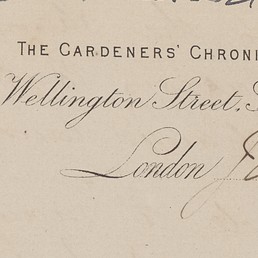 THE GARDENERS' CHRONI
Wellington Street, S
London